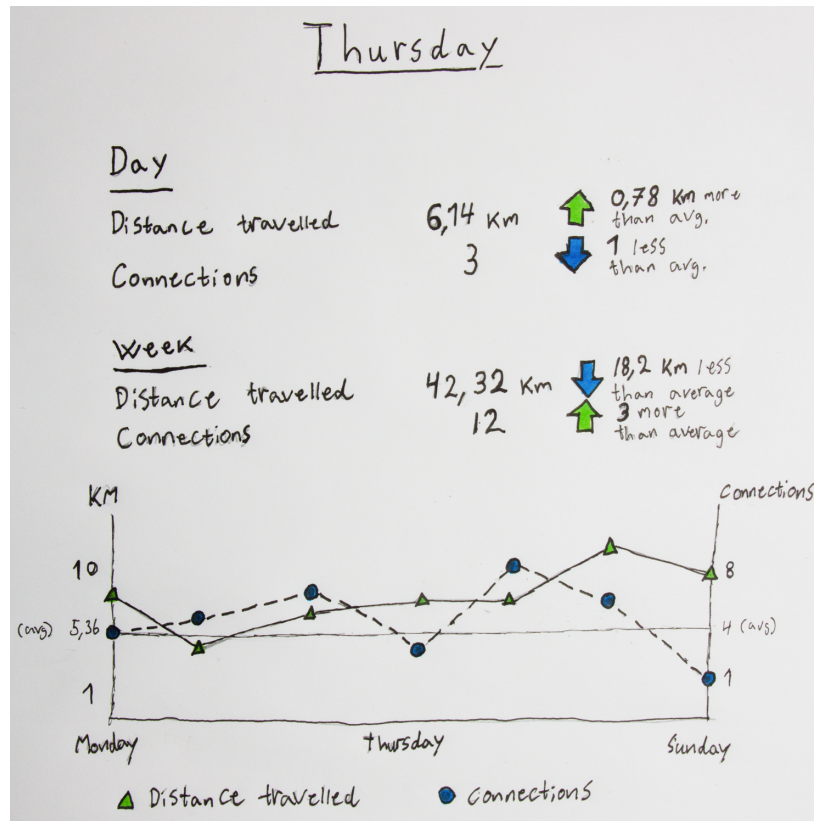 Thursday
Day
Distance travelled 6,14 Km 0,78 Km more than avg.
Connections 3 1 less than avg.
Week
Distance travelled 42,32 Km 18,2 Km less than average
Connections 12 3 more than average
KM Connections
10 8
(avg) 5,36 4 (avg)
1 1
Monday Thursday Sunday
Distance travelled Connections